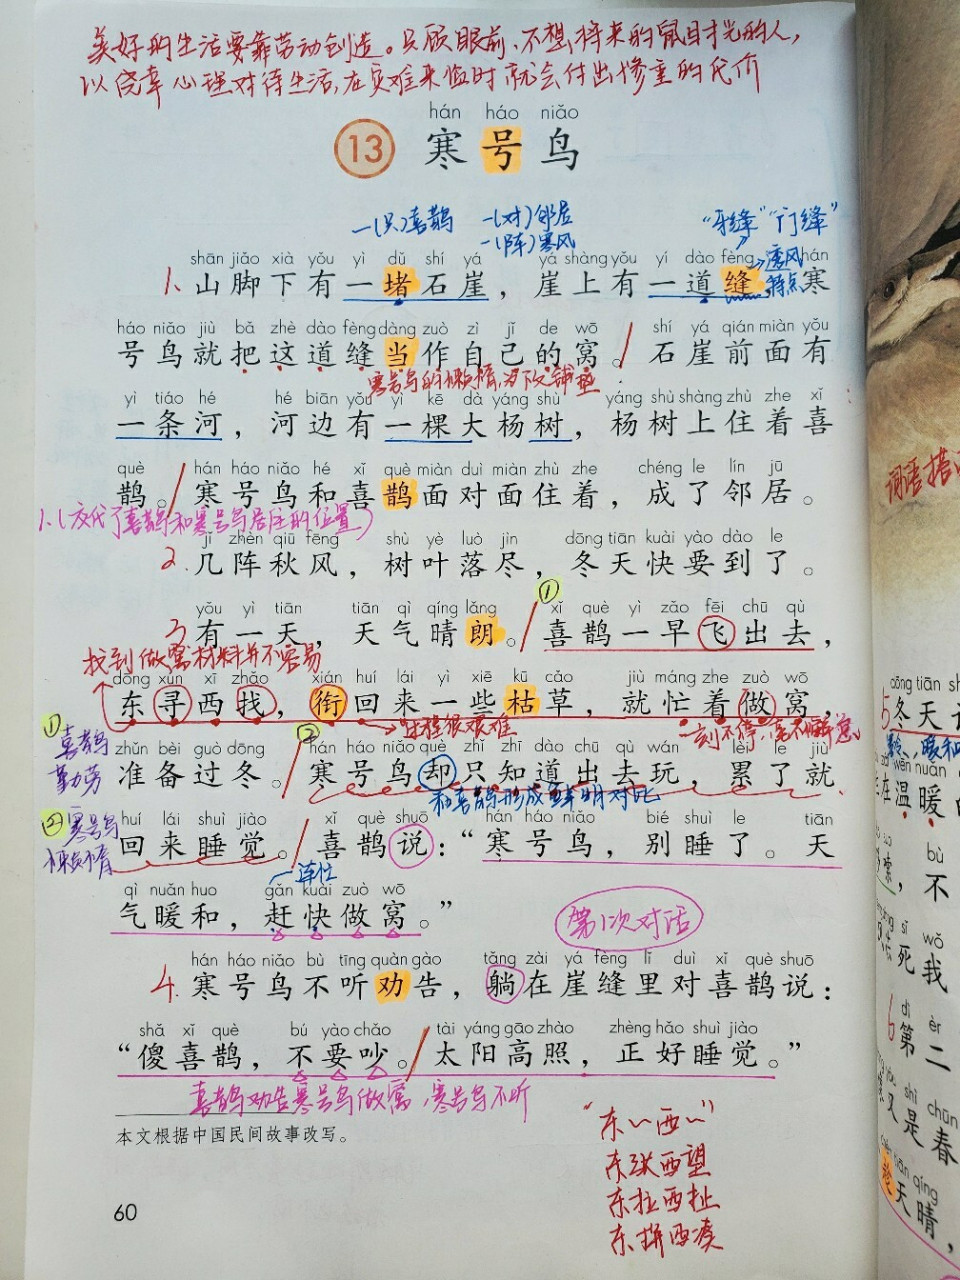 美好的生活要靠劳动创造。只顾眼前、不想将来的鼠目寸光的人,
以侥幸心理对待生活,在灾难来临时就会付出惨重的代价
hán háo niǎo
13 寒号鸟
一(只)喜鹊 一(对)邻居 “牙缝”“门缝”
一(阵)寒风
透风
特点
shān jiǎo xià yǒu yì dǔ shí yá yá shàng yǒu yí dào fèng hán
1. 山脚下有一堵石崖，崖上有一道缝，寒
háo niǎo jiù bǎ zhè dào fèng dàng zuò zì jǐ de wō shí yá qián miàn yǒu
号鸟就把这道缝当作自己的窝。石崖前面有
寒号鸟的懒惰,为下文铺垫
yì tiáo hé hé biān yǒu yì kē dà yáng shù yáng shù shàng zhù zhe xǐ
一条河，河边有一棵大杨树，杨树上住着喜
què hán háo niǎo hé xǐ què miàn duì miàn zhù zhe chéng le lín jū
鹊。寒号鸟和喜鹊面对面住着，成了邻居。
1.(交代了喜鹊和寒号鸟居住的位置)
jǐ zhèn qiū fēng shù yè luò jìn dōng tiān kuài yào dào le
2. 几阵秋风，树叶落尽，冬天快要到了。
①
yǒu yì tiān tiān qì qíng lǎng xǐ què yì zǎo fēi chū qù
3 有一天，天气晴朗。喜鹊一早飞出去，
找到做窝材料并不容易
dōng xún xī zhǎo xián huí lái yì xiē kū cǎo jiù máng zhe zuò wō
东寻西找，衔回来一些枯草，就忙着做窝，
过程很艰难
①喜鹊
勤劳
②
zhǔn bèi guò dōng hán háo niǎo què zhǐ zhī dào chū qù wán lèi le jiù
准备过冬。寒号鸟却只知道出去玩，累了就
和喜鹊形成鲜明对比
②寒号鸟
懒惰
huí lái shuì jiào xǐ què shuō hán háo niǎo bié shuì le tiān
回来睡觉。喜鹊说：“寒号鸟，别睡了。天
连忙
qì nuǎn huo gǎn kuài zuò wō
气暖和，赶快做窝。”
第1次对话
hán háo niǎo bù tīng quàn gào tǎng zài yá fèng lǐ duì xǐ què shuō
4. 寒号鸟不听劝告，躺在崖缝里对喜鹊说：
shǎ xǐ què bú yào chǎo tài yáng gāo zhào zhèng hǎo shuì jiào
“傻喜鹊，不要吵。太阳高照，正好睡觉。”
喜鹊劝告寒号鸟做窝,寒号鸟不听
本文根据中国民间故事改写。
“东~西~”
东张西望
东拉西扯
东拼西凑
60
词语搭
5 冬天
wēn nuǎn
在温暖
bù
，不
sǐ wǒ
死我
dì èr
6 第二
shì chūn
又是春
tiān qíng
天晴，